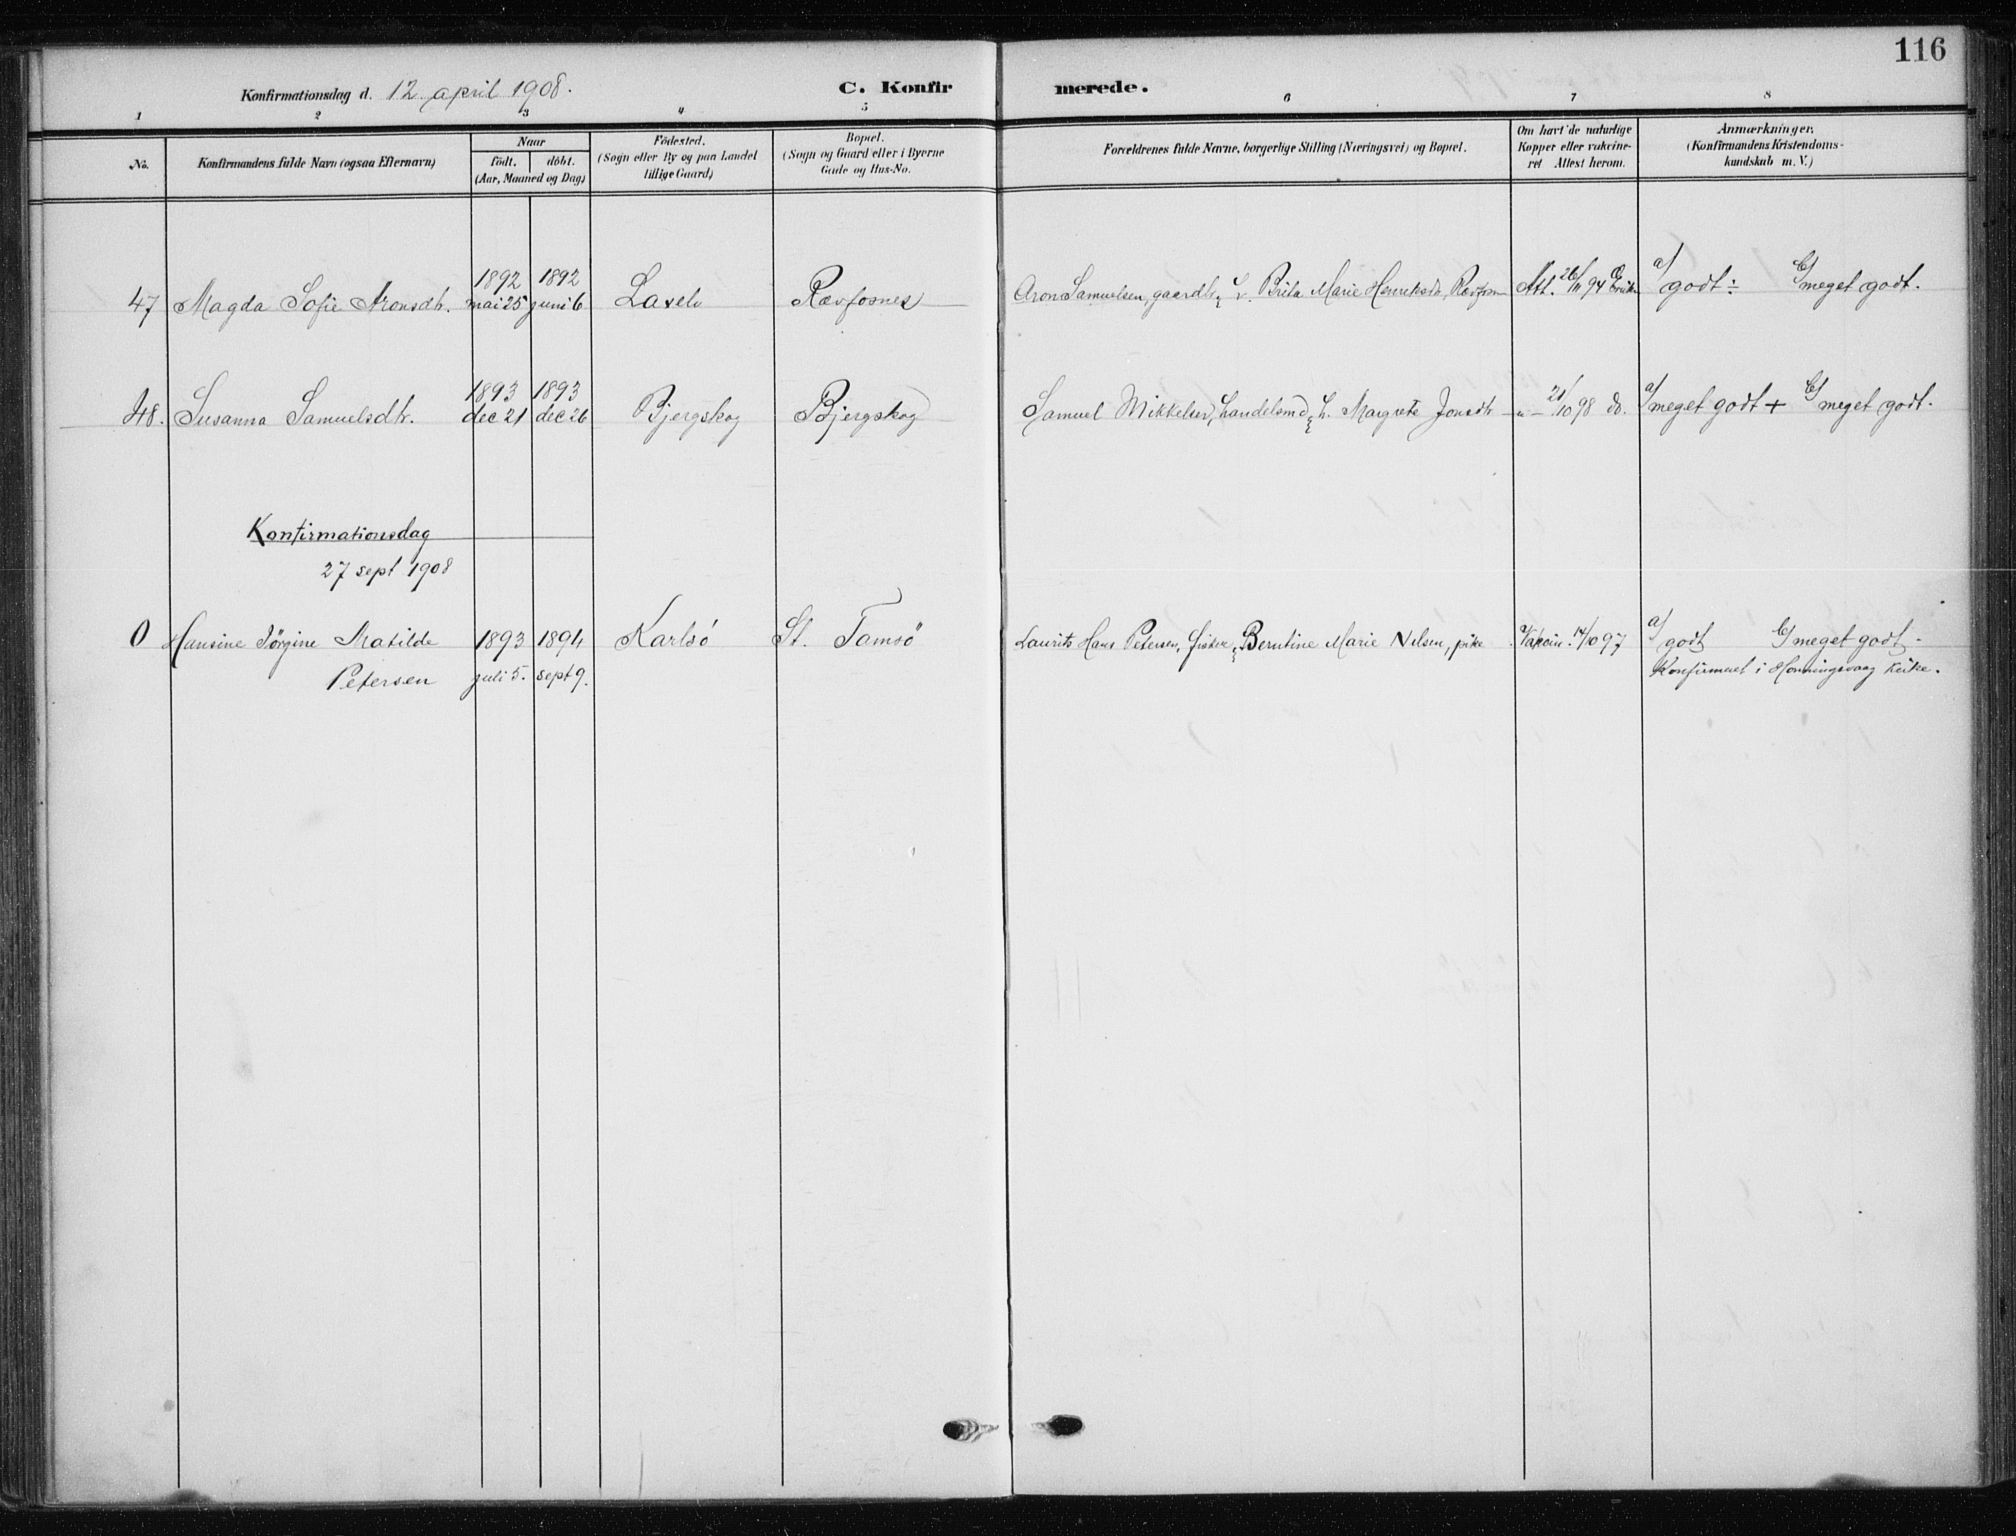 116
Konfirmationsdag d. 12. april 1908.
C. Konfirmerede.
1 2 3 4 5 6 7 8
No.
Konfirmandens fulde Navn (ogsaa Efternavn)
Naar
födt. döbt.
(Aar, Maaned og Dag)
Födested.
(Sogn eller By og paa Landet
tillige Gaard)
Bopæl.
(Sogn og Gaard eller i Byerne
Gade og Hus-No.
Forældrenes fulde Navne, borgerlige Stilling (Næringsvei) og Bopæl.
Om havt de naturlige
Kopper eller vakcine-
ret Attest herom.
Anmærkninger.
(Konfirmandens Kristendoms-
kundskab m. V.)
1892 1892
47 Magda Sofie Aronsdtr. mai 25 juni 6 Laxelv Rævfosnes Aron Samuelsen, gaardbr. & h. Brita Marie Henriksdtr, Rævfosn Att. 26/11 94 a) godt ÷ b) meget godt.
1893 1893
48. Susanna Samuelsdtr. dec 21 dec 26 Bjergskog Bjergskog Samuel Mikkelsen, handelsmd & h. Margrete Jonsdtr - " - 21/10 98 do. a) meget godt + b) meget godt.
Konfirmationsdag
27 sept 1908
0 Hansine Jörgine Matilde 1893 1894 Karlsö St. Tamsö Laurits Hans Petersen, fisker & Berntine Marie Nilsen, pike Vakcin. 14/10 97 a) godt b) meget godt -
Petersen juli 5. sept 9. Konfirmeret i Honningsvaag kirke.